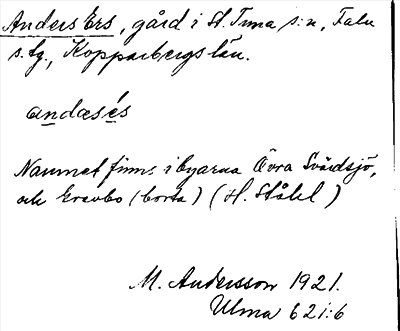 Anders Ers, gård i St. Tuna s:n, Falu
s.lg., Kopparbergs län.
andæsés
Namnet finns i byarna Övra Svärdsjö,
och Gravbo (borta) (H. Ståhl)
M. Andersson 1921.
Ulma 621:6